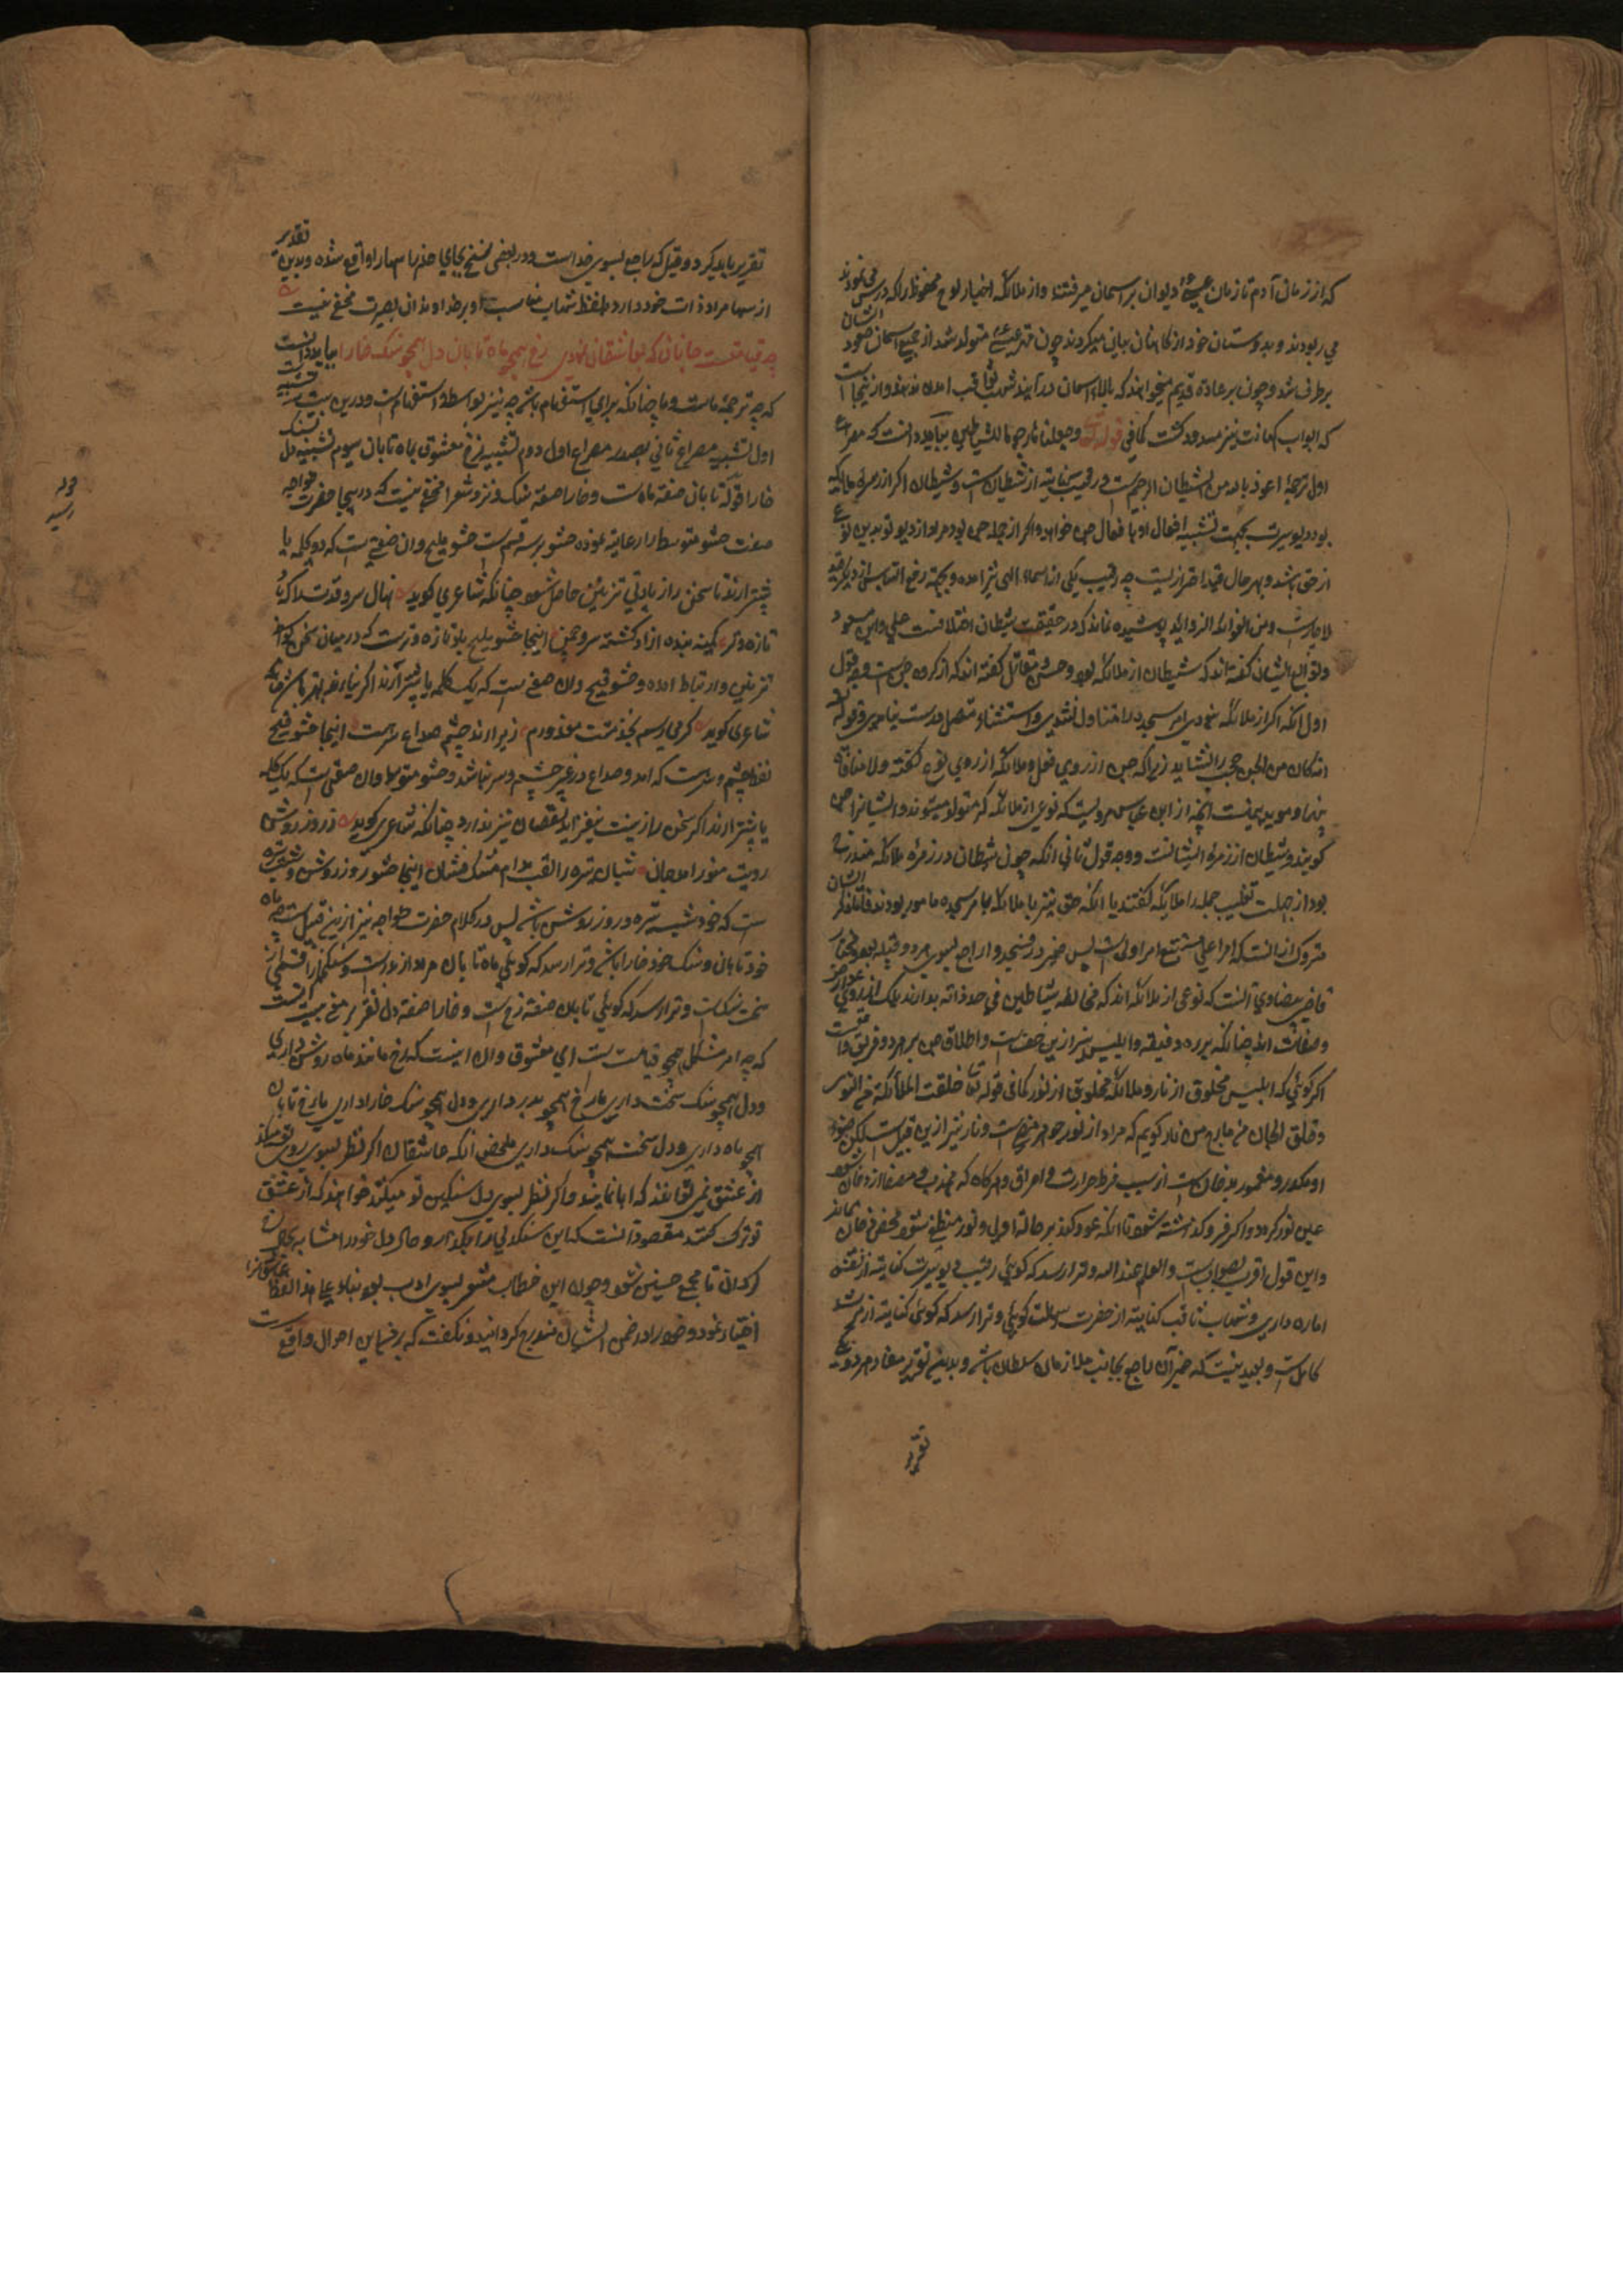 که از زمان آدم تا زمان عیسی دیوان بر آسمان میرفتند و از ملائکه اخبار لوح محفوظ را که درس می نمودند
می ربودند و بدوستان خود از کاهنان بیان میکردند چون حضرت عیسی متولد شد از جمیع آسمان صعود ایشان
برطرف شد و چون بر عادة قدیم میخواهند که بالای آسمان در آیند شهاب ثاقب
که ابواب کهانت نیز مسدود گشت کما فی قوله تعالی وجعلناها رجوما للشیاطین بباید دانست که مصراع
اول ترجمهٔ اعوذ بالله من الشیطان الرجیم است و رقیب کنایت از شیطان است و شیطان اگر از زمرهٔ ملائکه
بود دیوسیرت بجهت تشبیه افعال او با فعال جن خواهد و اگر از جمله جن بود مراد از دیو تو بدین نوع
از جن باشد و بهر حال قید احتراز نیست چه رقیب یکی از اسماء الهی نیز آمده و بجهة رفع التباس
لا جرمست ومن الفوائد الزوائد پوشیده نماند که در حقیقت شیطان اختلافست
و توابع ایشان گفته اند که شیطان از ملائکه بود و حسن و مقاتل گفته اند که از گروه جن است وجه قول
اول آنکه اگر از ملائکه نبودی امر اسجدوا را متناول نشدی و استثناء متصل درست نیامدی و قوله تعالی
انه کان من الجن حجت را نشاید زیرا که جن از روی فعل و ملائکه از روی نوع گفته ولا منافاة
بینهما و موید اینست آنچه از ابن عباس مرویست که نوعی از ملائکه که متولد میشوند و ایشانرا جن
گویند و شیطان از زمرهٔ ایشانست و وجه قول ثانی آنکه چون شیطان در زمرهٔ ملائکه مندرج
بود از جهت تغلیب جمله را ملائکه گفتند یا آنکه جن نیز با ملائکه بامر سجده مامور بودند فاما ذکر ایشان
متروک از آنست که امر اعلی مستتبع امر اولی است پس ضمیر در فسجدوا راجع بسوی هر دو قبیله بود و مختار
قاضی بیضاوی آنست که نوعی از ملائکه اند که مخالفه شیاطین فی حد ذاته ندارند بلک از روی عوارض
و صفات
اگر گوئی که ابلیس مخلوق از نار و ملائکه مخلوق از نور کما فی قوله تعالی خلقت الملائکة من النور
وخلق الجان من مارج من نار گویم که مراد از نور جوهر مضی است و نار نیز ازین قبیل است لیکن ضوء
او مکدر و مغمور بدخان است از سبب فرط حرارت و احراق و هرگاه که مهذب و مصفا از دخان شود
عین نور گردد و اگر فرو گذاشته شود تا آنکه عود کند بر حالة اولی و نور منطفی شود محض دخان بماند
و این قول اقرب بصواب است والعلم عند الله و ترا رسد که گوئی رقیب دیوسیرت کنایت از نفس
اماره داری و شهاب ثاقب کنایت از حضرت رسالت گوئی و ترا رسد که گوئی کنایت از مرشد
کامل است و بعید نیست که ضمیر آن راجع بجانب ملازمان سلطان باشد و بدین تقدیر مفاد هر دو مصرع
تقریر
تقریر باید کرد و قیل که راجع بسوی خداست و در بعضی نسخ بجای خدا را سها را واقع شده و بدین تقدیر
از سها مراد ذات خود دارد و لفظ شهاب مناسب او بر خداوندان بصیرت مخفی نیست
چه قیامتست جانان که بعاشقان نمودی رخ همچو ماه تابان دل همچو سنگ خارا بباید دانست
که چه ترجمهٔ ماست و ما چنانکه برای استفهام باشد چه نیز بواسطهٔ استفهام است و درین بیت سه تشبیه است
اول تشبیه مصراع ثانی بصدر مصراع اول دوم تشبیه رخ معشوق بماه تابان سیوم تشبیه دل بسنگ
خارا قوله تابان صفة ماه ست و خارا صفة سنگ و نزد شعرا مخفی نیست که درینجا حضرت خواجه
صفت حشو متوسط را رعایت نموده حشو بر سه قسم است حشو ملیح و آن صفتی است که دو کلمه یا
بیشتر آرند تا سخن را زیادتی تزئین حاصل شود چنانکه شاعری گوید نهال سرو قدت را که باد
تازه و تر کمینه بنده آزاد گشته سرو چمن اینجا حشو ملیح باد تازه و ترست که در میان سخن
تزیین و ارتباط آمده و حشو قبیح و آن صفتی است که یک کلمه یا بیشتر آرند اگر نیارند بهتر باشد چنانکه
شاعری گوید گر می نرسم بخدمتت معذورم زیرا رمد چشم و صداع سرست اینجا حشو قبیح
لفظ چشم و سرست که رمد و صداع در غیر چشم و سر نباشد و حشو متوسط و آن صفتی است که یک کلمه
یا بیشتر آرند اگر سخن را زینت نیفزاید نقصان نیز ندارد چنانکه شاعری گوید ز روز روشن
رویت منور آمد جان شبان تیره زلفت مدام مشک فشان اینجا حشو روز روشن و شب تیره
ست که خود شب تیره و روز روشن باشد پس در کلام حضرت خواجه نیز ازین قبیل است چه ماه
خود تابان و سنگ خود خارا باشد و ترا رسد که گوئی ماه تابان مراد از بدر است و سنگ خارا قسمی از
سخت سنگ است و ترا رسد که گوئی تابان صفة رخ است و خارا صفة دل تقریر معنی بیت آنست
که چه امر مشکل همچو قیامت ست ای معشوق و آن اینست که رخ مانند ماه روشن داری
و دل همچو سنگ سخت داری یا رخ همچو بدر داری و دل همچو سنگ خارا داری یا رخ تابان
همچو ماه داری و دل سخت همچو سنگ داری ملخص آنکه عاشقان اگر نظر بسوی روی تو میکنند
از عشق نمی توانند که ابا نمایند و اگر نظر بسوی دل سنگین تو میکنند خواهند که از عشق
تو ترک کنند مقصود آنست که این سنگدلی را بگذار و حال دل خود را مشابه بحال رخ
گردان تا مجمع حسنین شود و چون این خطاب مشعر بسوی ادب بود بناء علی هذا لفظ عاشقانرا
اختیار نمود و خود را در ضمن ایشان مندرج گردانید و نگفت که بر من این احوال واقع است